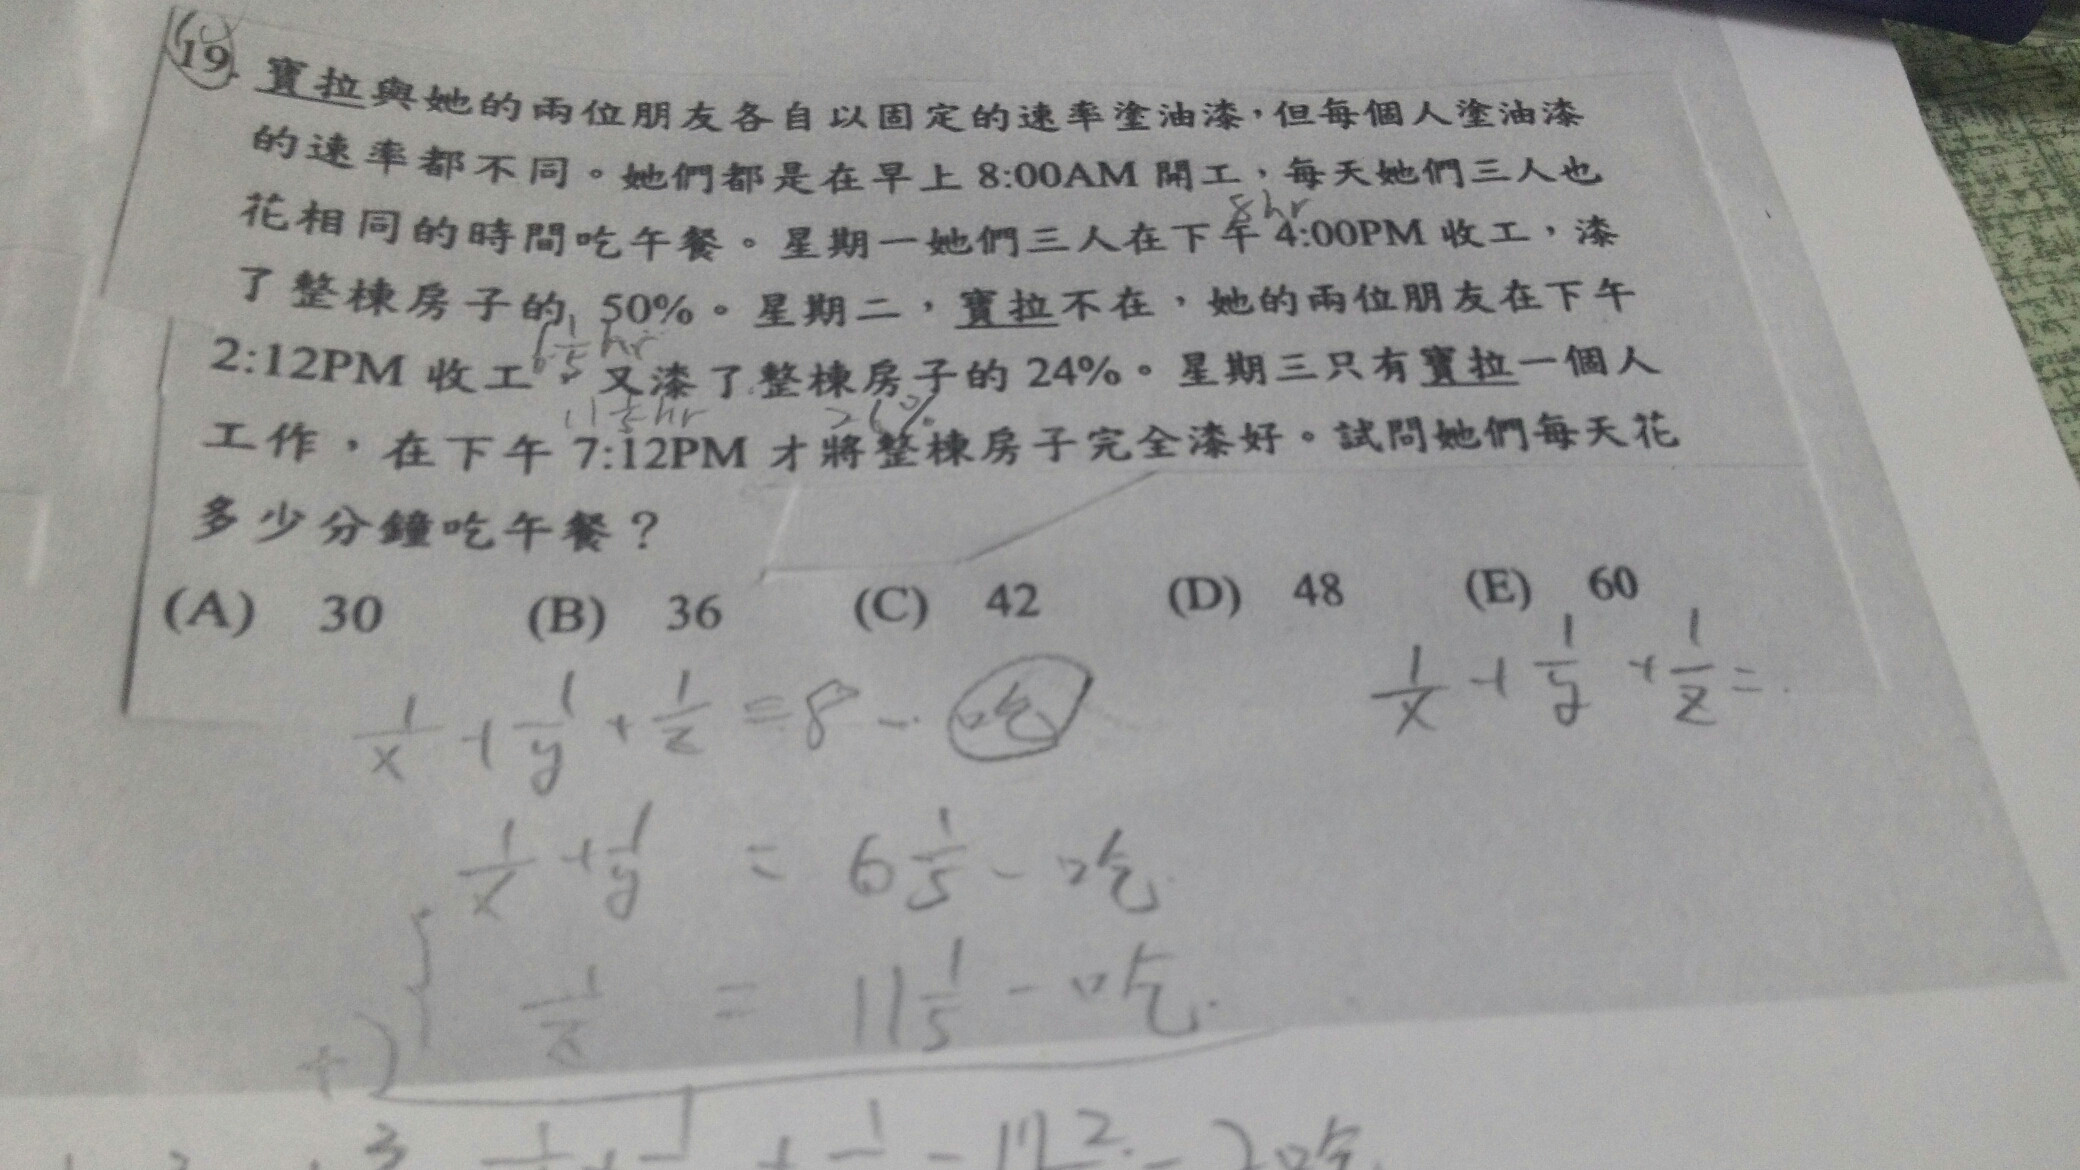 19. 寶拉與她的兩位朋友各自以固定的速率塗油漆，但每個人塗油漆
的速率都不同。她們都是在早上 8:00AM 開工，每天她們三人也
8hr
花相同的時間吃午餐。星期一她們三人在下午 4:00PM 收工，漆
了整棟房子的 50%。星期二，寶拉不在，她的兩位朋友在下午
6 1/5 hr
2:12PM 收工，又漆了整棟房子的 24%。星期三只有寶拉一個人
11 1/5 hr 26%
工作，在下午 7:12PM 才將整棟房子完全漆好。試問她們每天花
多少分鐘吃午餐？
(A) 30 (B) 36 (C) 42 (D) 48 (E) 60
1/x + 1/y + 1/z = 8 - 吃 1/x + 1/y + 1/z =
1/x + 1/y = 6 1/5 - 吃
1/z = 11 1/5 - 吃